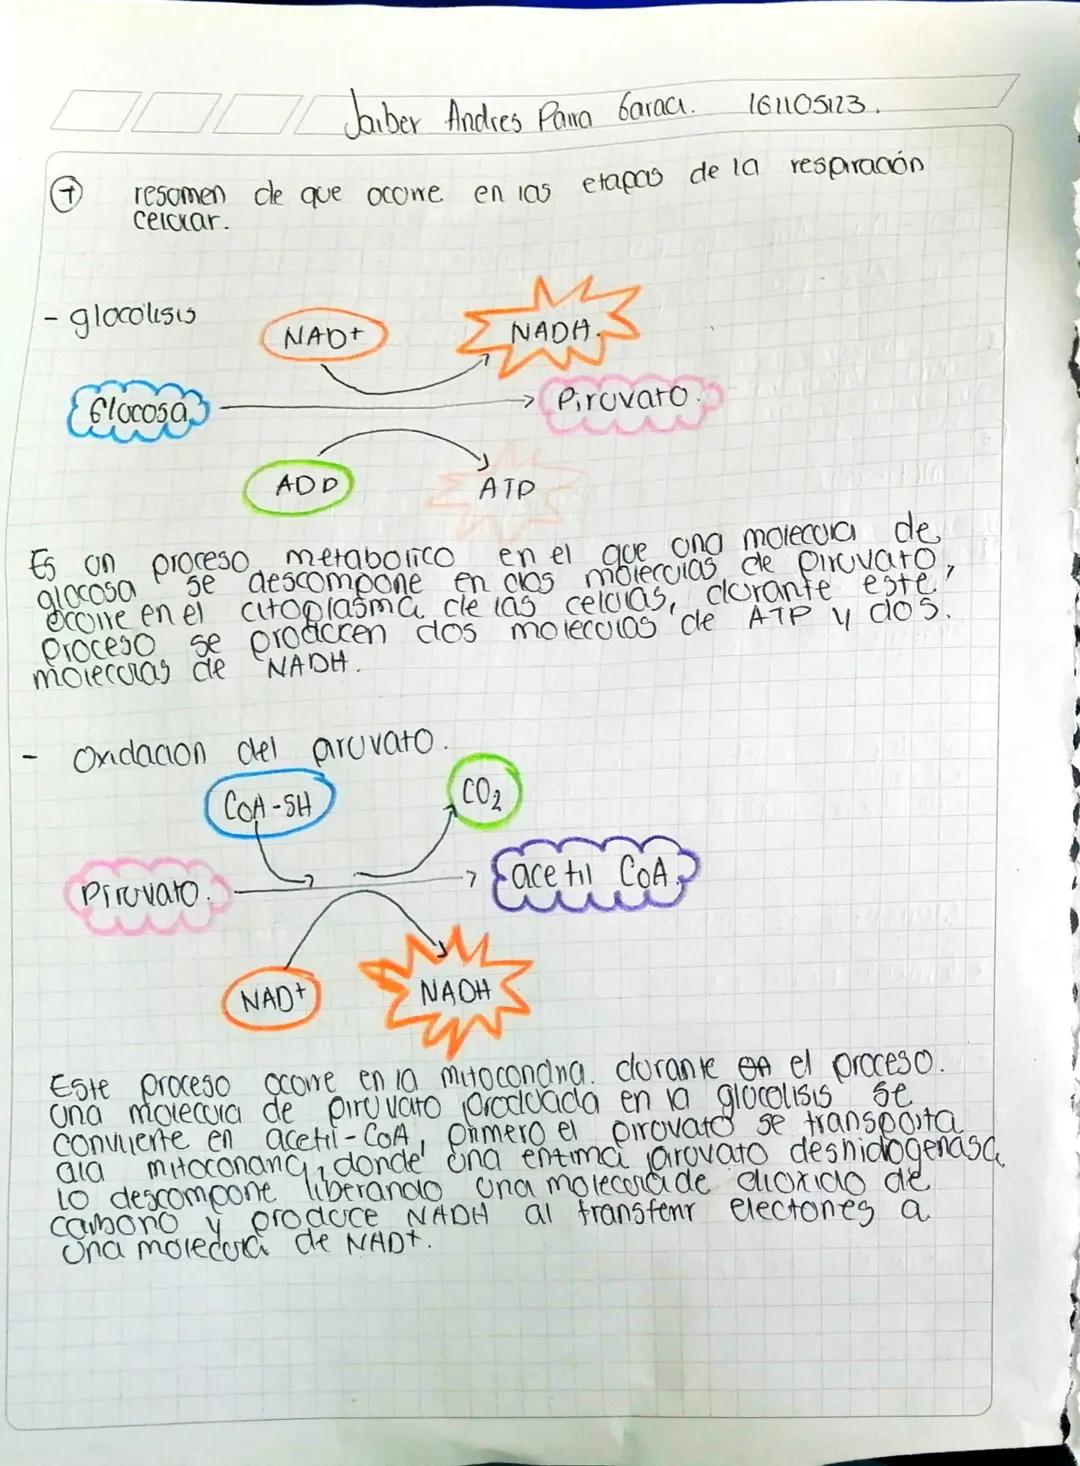 Jaiber Andres Parra Garaci. 161105123.
7 resumen de que ocurre en las etapas de la respiración
celular.
- glucolisis
NAD+ NADH.
Glucosa Piruvato.
ADP ATP
Es un proceso metabolico en el que una molecula de
glucosa se descompone en dos moleculas de Piruvato,
ocurre en el citoplasma de las celulas, durante este
proceso se producen dos moleculas de ATP y dos.
moleculas de NADH.
- Oxidacion del piruvato.
CoA-SH CO2
Piruvato. acetil CoA.
NAD+ NADH
Este proceso ocurre en la mitocondria. durante el proceso.
una molecula de piruvato producida en la glucolisis se
convierte en acetil-CoA, primero el piruvato se transporta
ala mitocondria, donde una enzima piruvato deshidrogenasa
lo descompone liberando una molecula de dioxido de
carbono y produce NADH al transferir electones a
una molecula de NAD+.